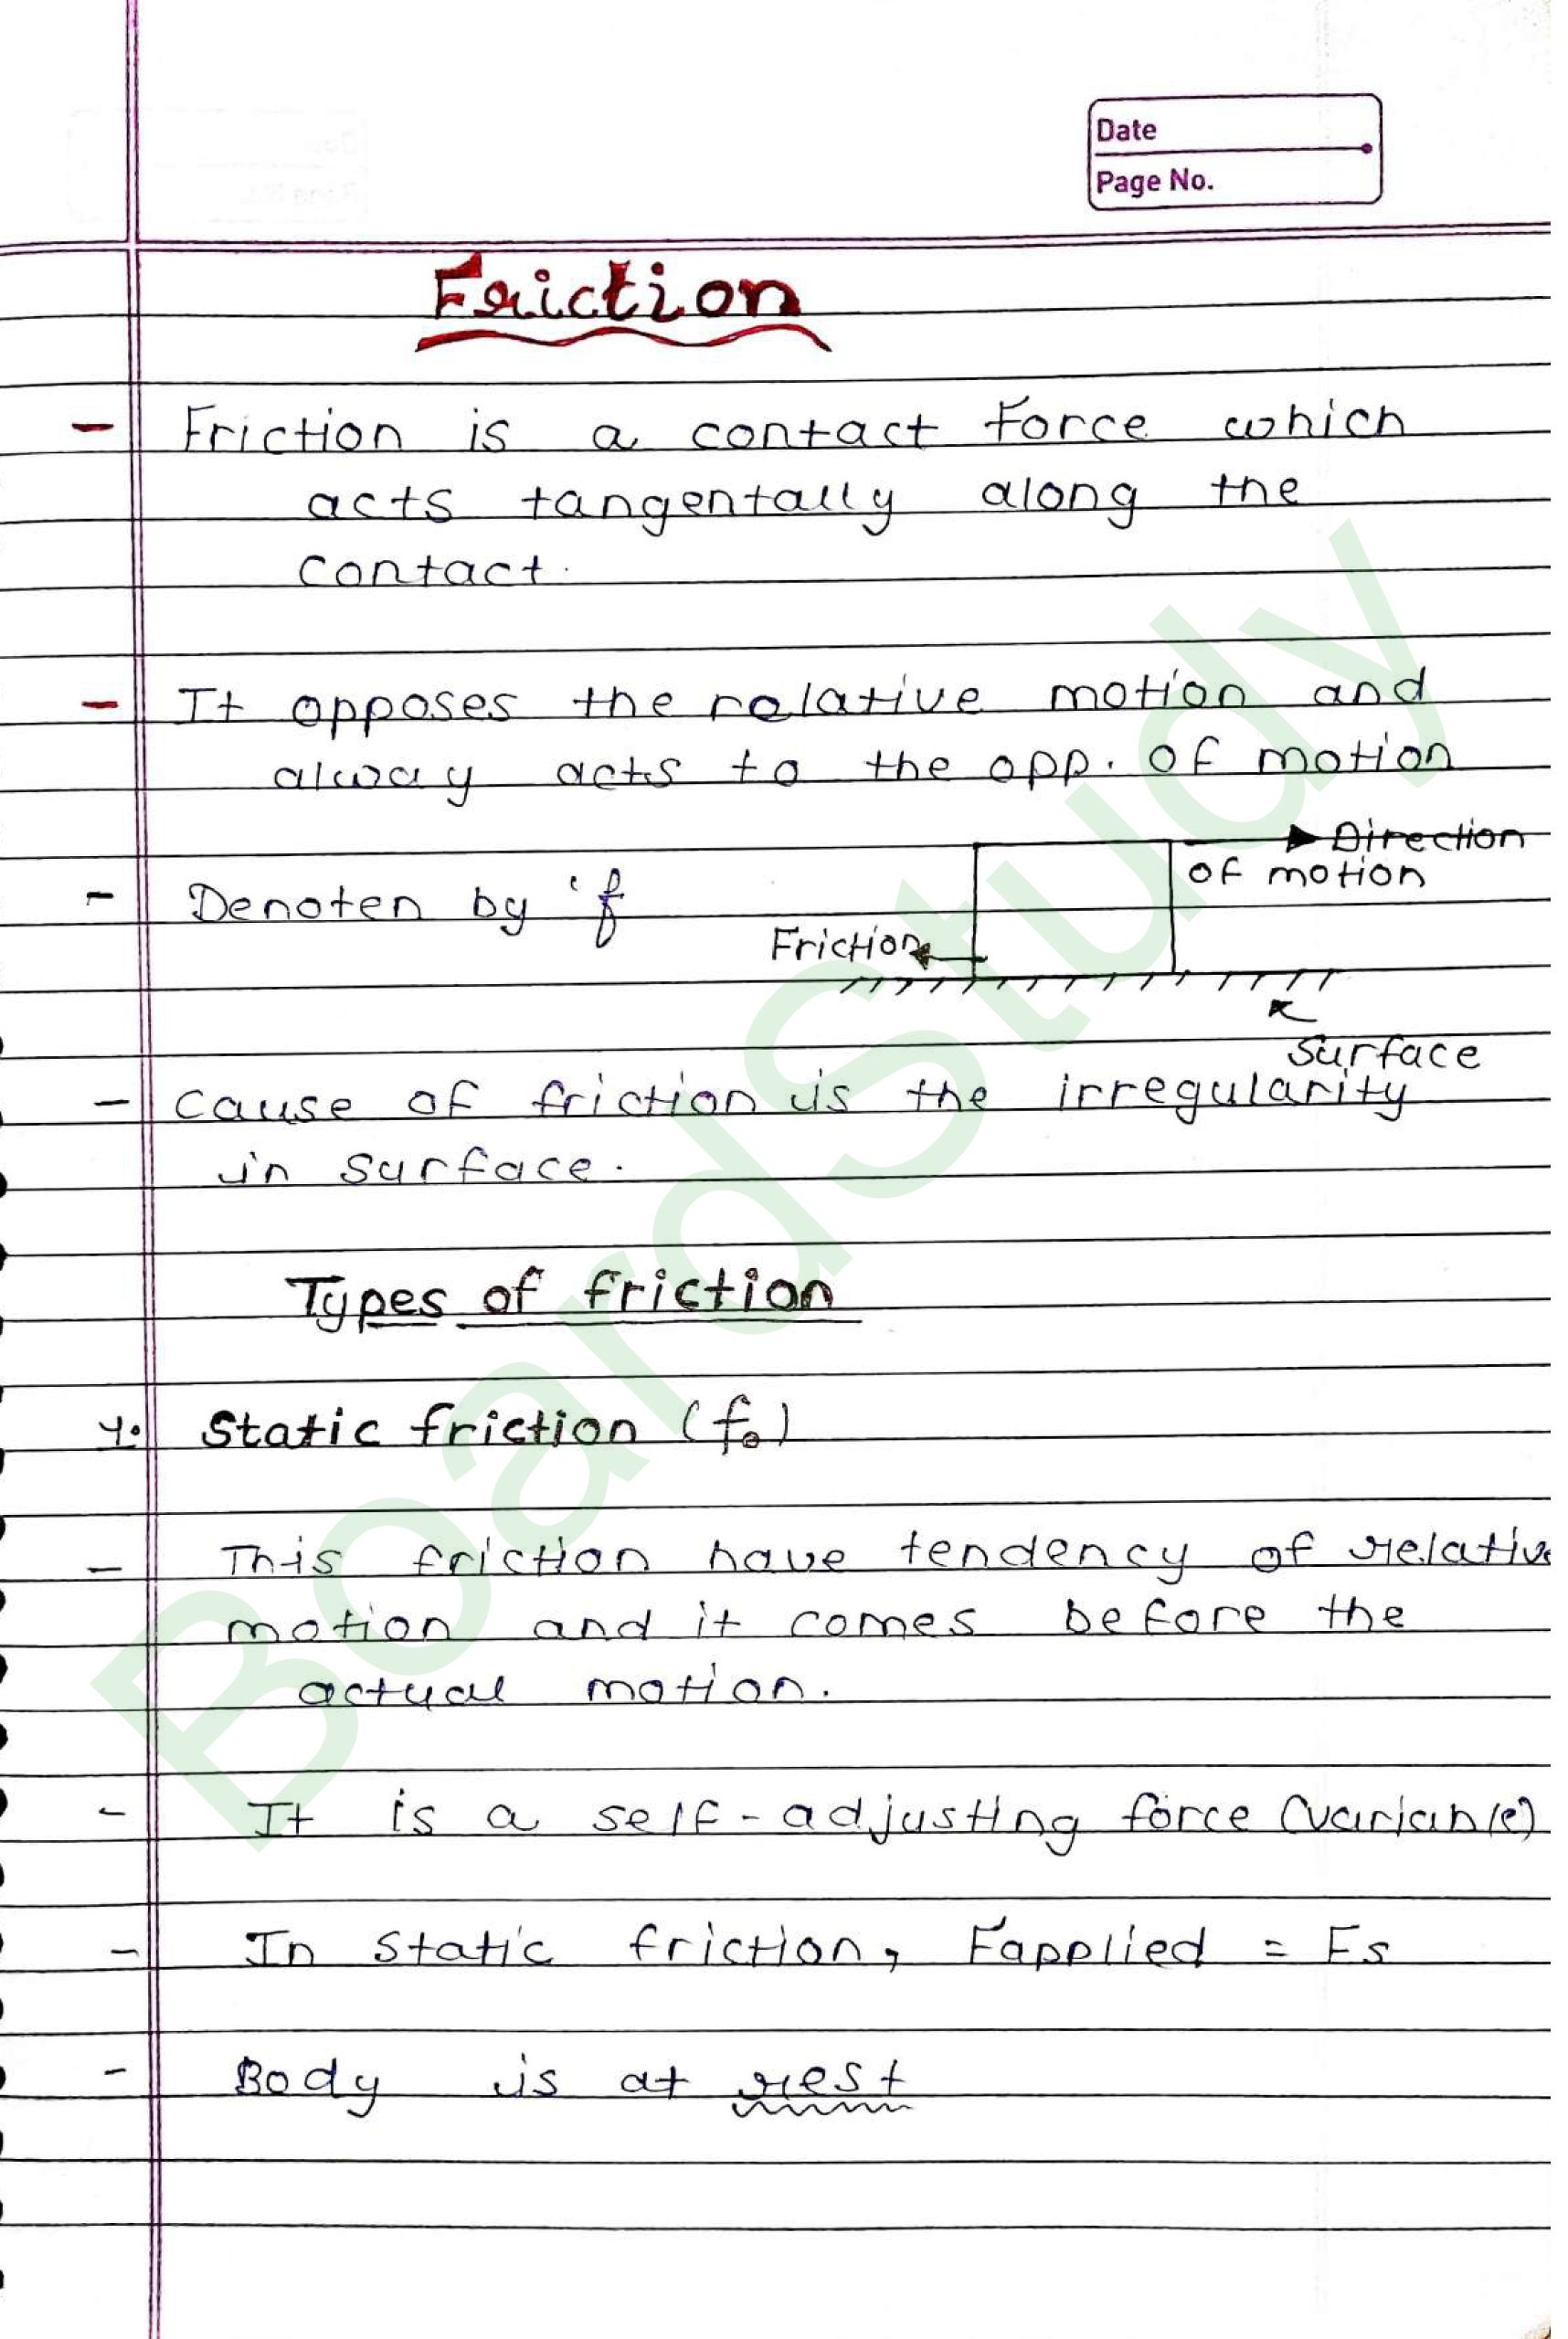 Date
Page No.
Friction
- Friction is a contact force which
acts tangentally along the
contact.
- It opposes the relative motion and
alway acts to the opp. of motion
Direction
of motion
- Denoten by 'f
Friction
Surface
- cause of friction is the irregularity
in surface.
Types of friction
1. Static friction (fo)
- This friction have tendency of relative
motion and it comes before the
actual motion.
- It is a self-adjusting force (variable)
- In static friction, Fapplied = Fs
- Body is at rest
BoardStudy